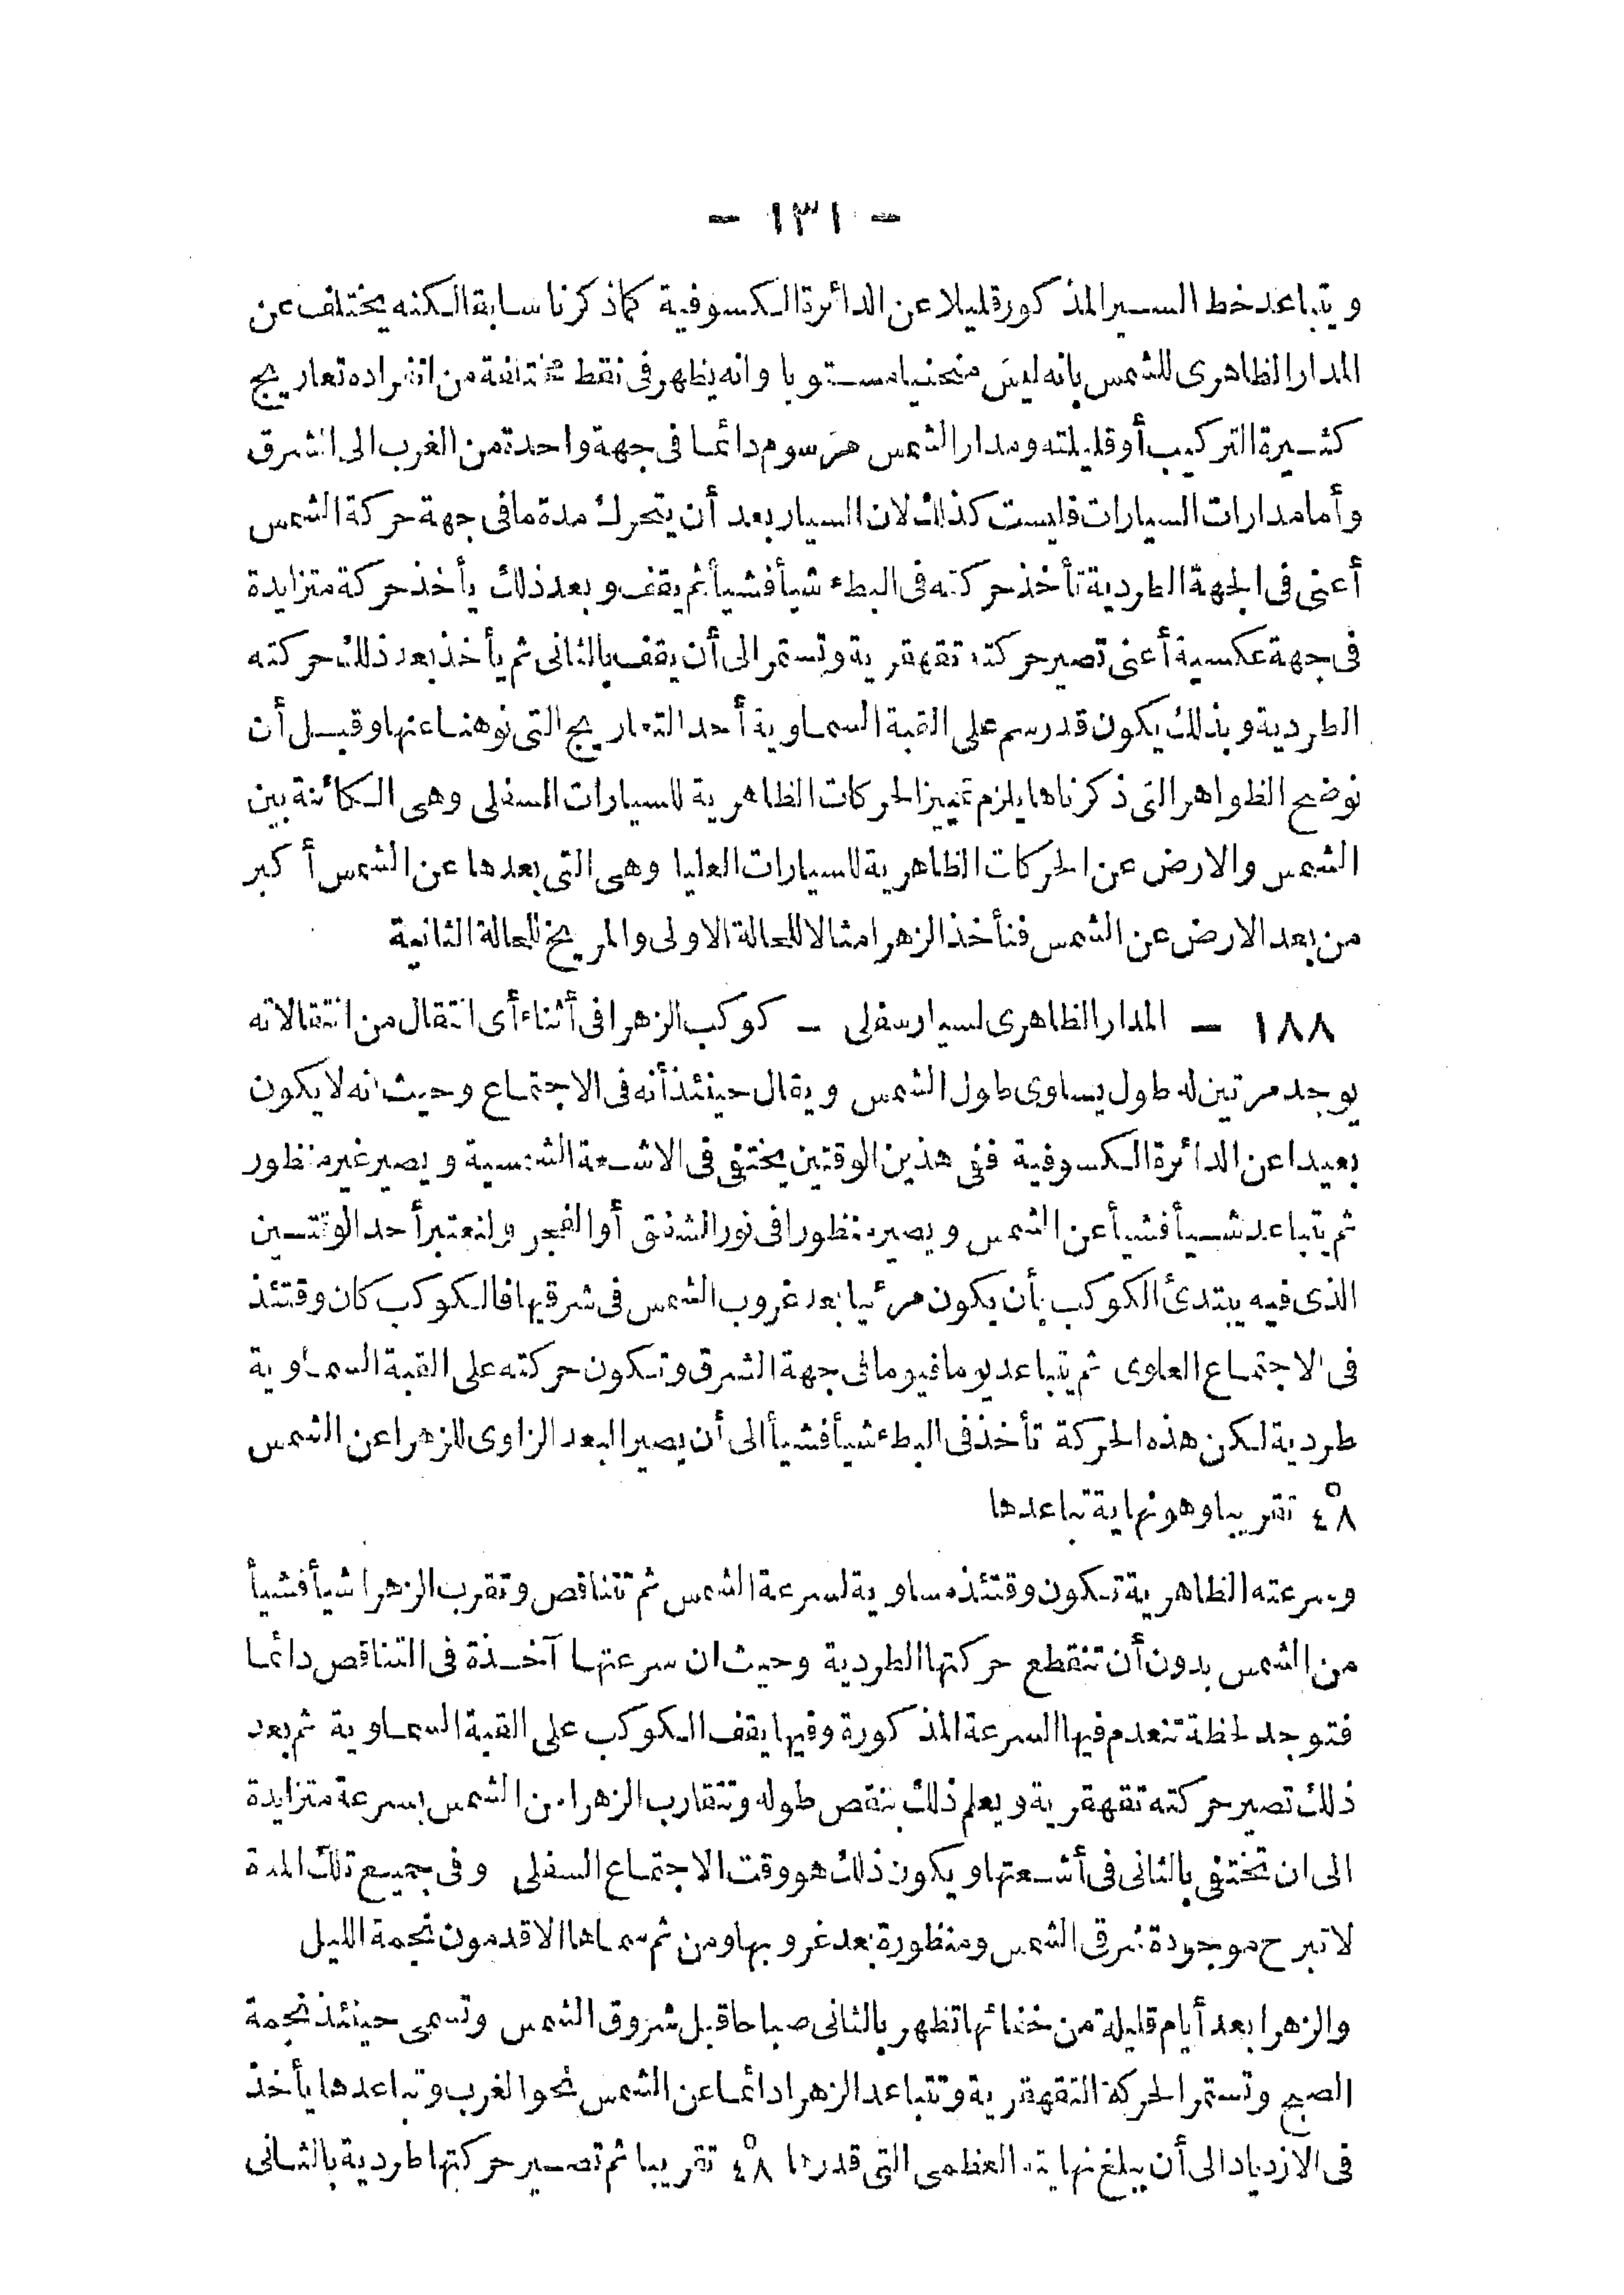 - ١٣١ -
ويتباعد خط السير المذكور قليلا عن الدائرة الكسوفية كماذكرنا سابقا لكنه يختلف عن
المدار الظاهرى للشمس بانه ليس منحنيا مستويا وانه يظهر فى نقط مختلفة من انفراده تعاريج
كثيرة التركيب أو قليلته ومدار الشمس مرسوم دائما فى جهة واحدة من الغرب الى الشرق
وأما مدارات السيارات فليست كذلك لان السيار بعد أن يتحرك مدة ما فى جهة حركة الشمس
أعنى فى الجهة الطردية تأخذ حركته فى البطء شيأ فشيأ ثم يقف وبعد ذلك يأخذ حركة متزايدة
فى جهة عكسية أعنى تصير حركته تقهقرية وتستمر الى أن يقف بالثانى ثم يأخذ بعد ذلك حركته
الطردية وبذلك يكون قد رسم على القبة السماوية أحد التعاريج التى نوهنا عنها وقبل أن
نوضح الظواهر التى ذكرناها يلزم تمييز الحركات الظاهرية للسيارات السفلى وهى الكائنة بين
الشمس والارض عن الحركات الظاهرية للسيارات العليا وهى التى بعدها عن الشمس أكبر
من بعد الارض عن الشمس فنأخذ الزهرا مثالا للحالة الاولى والمريخ للحالة الثانية
١٨٨ - المدار الظاهرى لسيار سفلى - كوكب الزهرا فى أثناء أى انتقال من انتقالاته
يوجد مرتين له طول يساوى طول الشمس ويقال حينئذ أنه فى الاجتماع وحيث انه لا يكون
بعيدا عن الدائرة الكسوفية ففى هذين الوقتين يختفى فى الاشعة الشمسية ويصير غير منظور
ثم يتباعد شيأ فشيأ عن الشمس ويصير منظورا فى نور الشفق أو الفجر ولنعتبر أحد الوقتين
الذى فيه يبتدئ الكوكب بأن يكون مرئيا بعد غروب الشمس فى شرقيها فالكوكب كان وقتئذ
فى الاجتماع العلوى ثم يتباعد يوما فيوما فى جهة الشرق وتكون حركته على القبة السماوية
طردية لكن هذه الحركة تأخذ فى البطء شيأ فشيأ الى أن يصير البعد الزاوى للزهرا عن الشمس
٤٨° تقريبا وهو نهاية تباعدها
وسرعته الظاهرية تكون وقتئذ مساوية لسرعة الشمس ثم تتناقص وتقرب الزهرا شيأ فشيأ
من الشمس بدون أن تنقطع حركتها الطردية وحيث ان سرعتها آخذة فى التناقص دائما
فتوجد لحظة تنعدم فيها السرعة المذكورة وفيها يقف الكوكب على القبة السماوية ثم بعد
ذلك تصير حركته تقهقرية ويعلم ذلك بنقص طوله وتتقارب الزهرا من الشمس بسرعة متزايدة
الى ان تختفى بالثانى فى أشعتها ويكون ذلك هو وقت الاجتماع السفلى وفى جميع تلك المدة
لا تبرح موجودة شرقى الشمس ومنظورة بعد غروبها ومن ثم سماها الاقدمون نجمة الليل
والزهرا بعد أيام قليلة من خفائها تظهر بالثانى صباحا قبل شروق الشمس وتسمى حينئذ نجمة
الصبح وتستمر الحركة التقهقرية وتتباعد الزهرا دائما عن الشمس نحو الغرب وتباعدها يأخذ
فى الازدياد الى أن يبلغ نهايته العظمى التى قدرها ٤٨° تقريبا ثم تصير حركتها طردية بالثانى